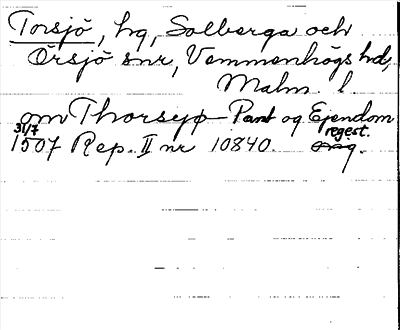 Torsjö, hg, Solberga och
Örsjö snr, Vemmenhögs hd,
Malm. l.
om Thorsejø Pant og Ejendom
31/7 regest.
1507 Rep. II nr 10840. orig.